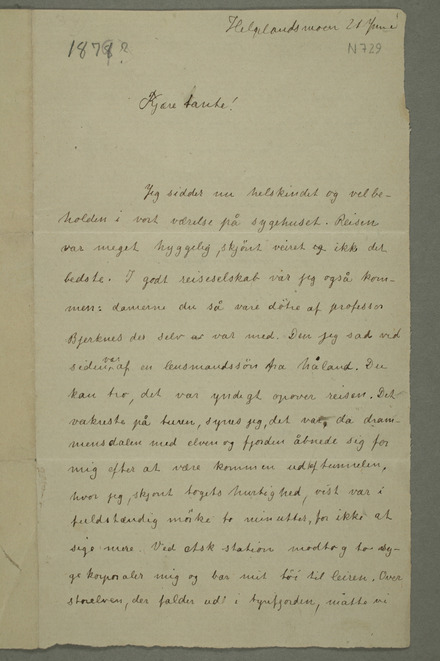 Helgelandsmoen 21 Juni
1878?
N 729
Kjære tante!
Jeg sidder nu helskindet og velbe-
holden i vort værelse på sygehuset. Reisen
var meget hyggelig, skjönt veiret ej ikke det
bedste. I godt reiseselskab var jeg også kom-
men: damerne du så vare dötre af professor
Bjerknes der selv var med. Den jeg sad ved
siden var af en lensmandssön fra Håland. Du
kan tro, det var yndigt opover reisen. Det
vakreste på turen, synes jeg, det var, da dram-
mensdalen med elven og fjorden åbnede sig for
mig efter at være kommen ud af tunnelen,
hvor jeg, skjönt togets hurtighed, vist var i
fuldstændig mörke to minutter, for ikke at
sige mere. Ved Ask station modtog to sy-
gekorporaler mig og bar mit töi til leiren. Over
storelven, der falder ud i tyrifjorden, måtte vi